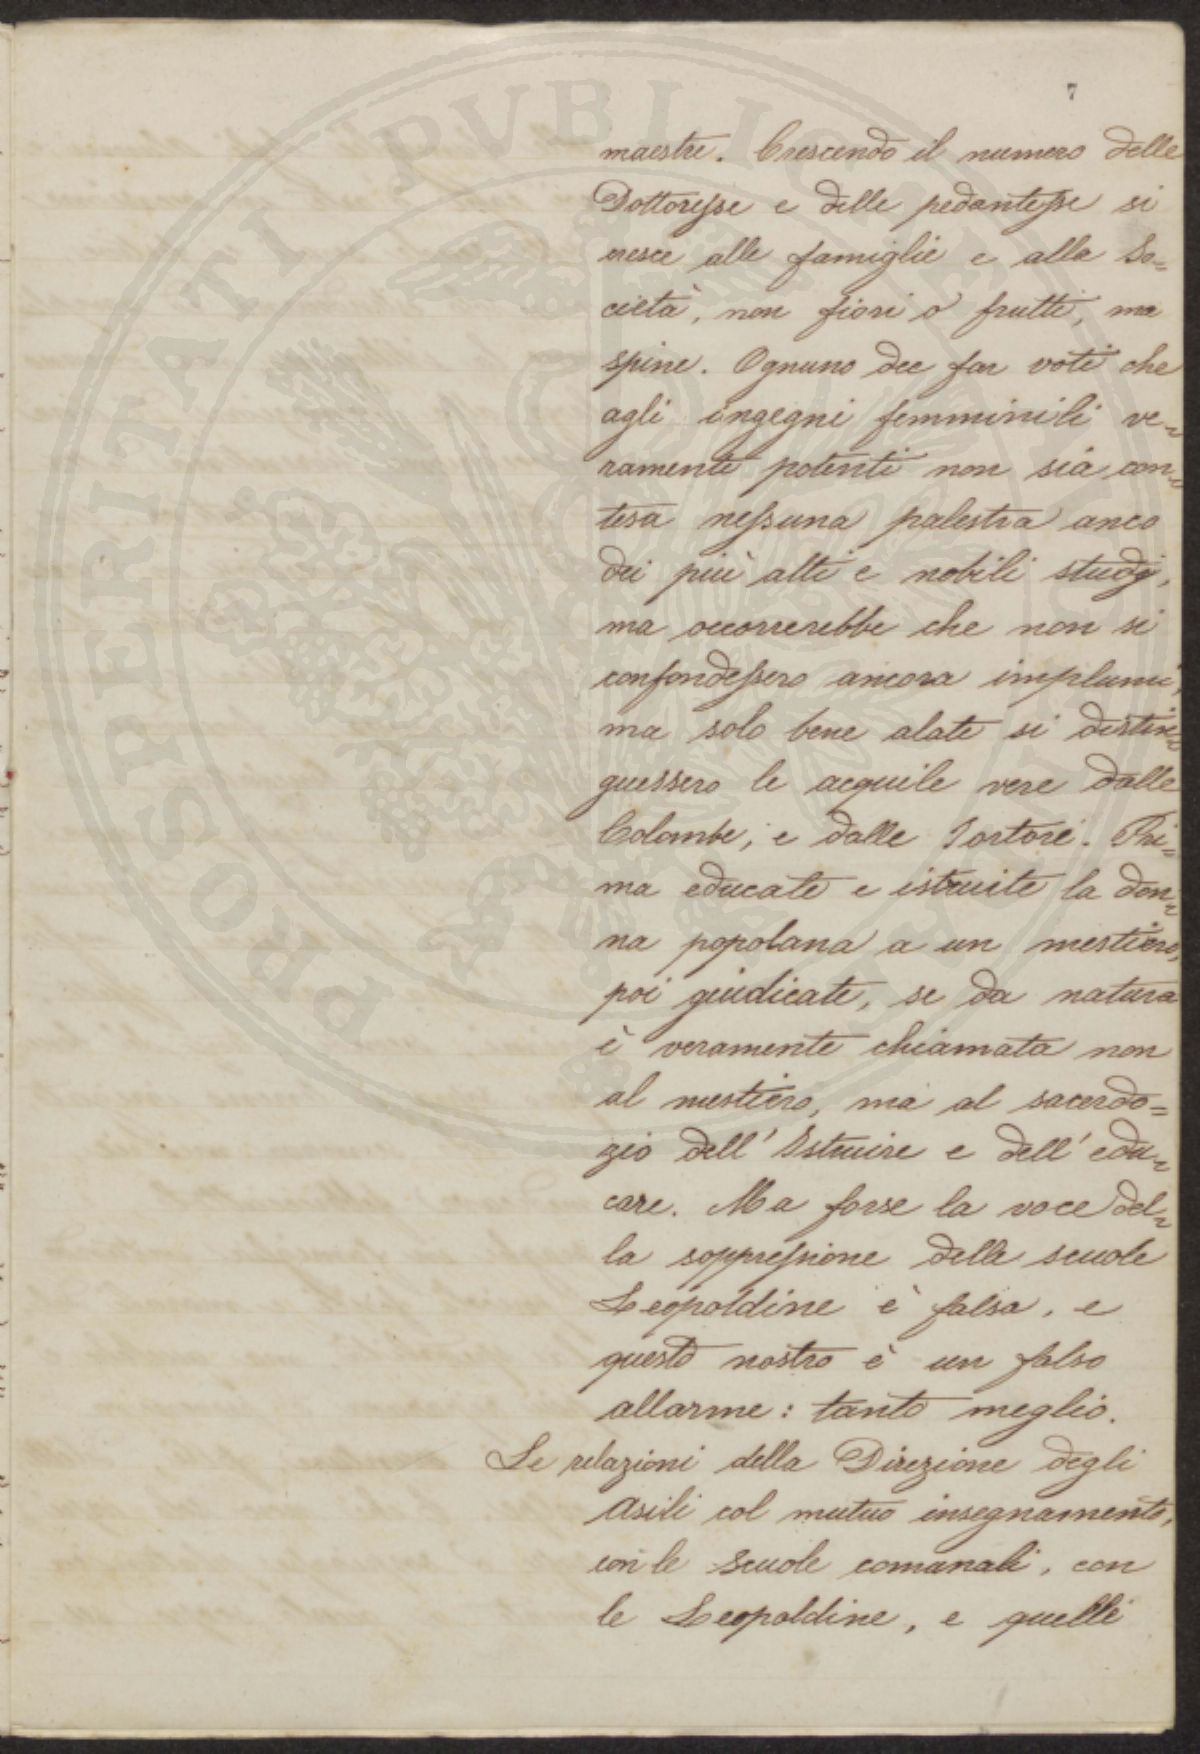 7
maestre. Crescendo il numero delle
Dottoresse e delle pedantesse si
cresce alle famiglie e alla So=
cietà, non fiori o frutti, ma
spine. Ognuno dee far voti che
agli ingegni femminili ve=
ramente potenti non sia con=
tesa nessuna palestra anco
dei più alti e nobili studj,
ma occorrerebbe che non si
confondessero ancora implumi,
ma solo bene alate si distin=
guessero le acquile vere dalle
Colombe, e dalle Tortore. Pri=
ma educate e istruite la don=
na popolana a un mestiero,
poi giudicate, se da natura
è veramente chiamata non
al mestiero, ma al sacerdo=
zio dell' Istruire e dell' edu=
care. Ma forse la voce del=
la soppressione delle scuole
Leopoldine è falsa, e
questo nostro è un falso
allarme: tanto meglio.
Le relazioni della Direzione degli
Asili col mutuo insegnamento,
con le Scuole comunali, con
le Leopoldine, e quelle
PROSPERITATI PVBLICAE